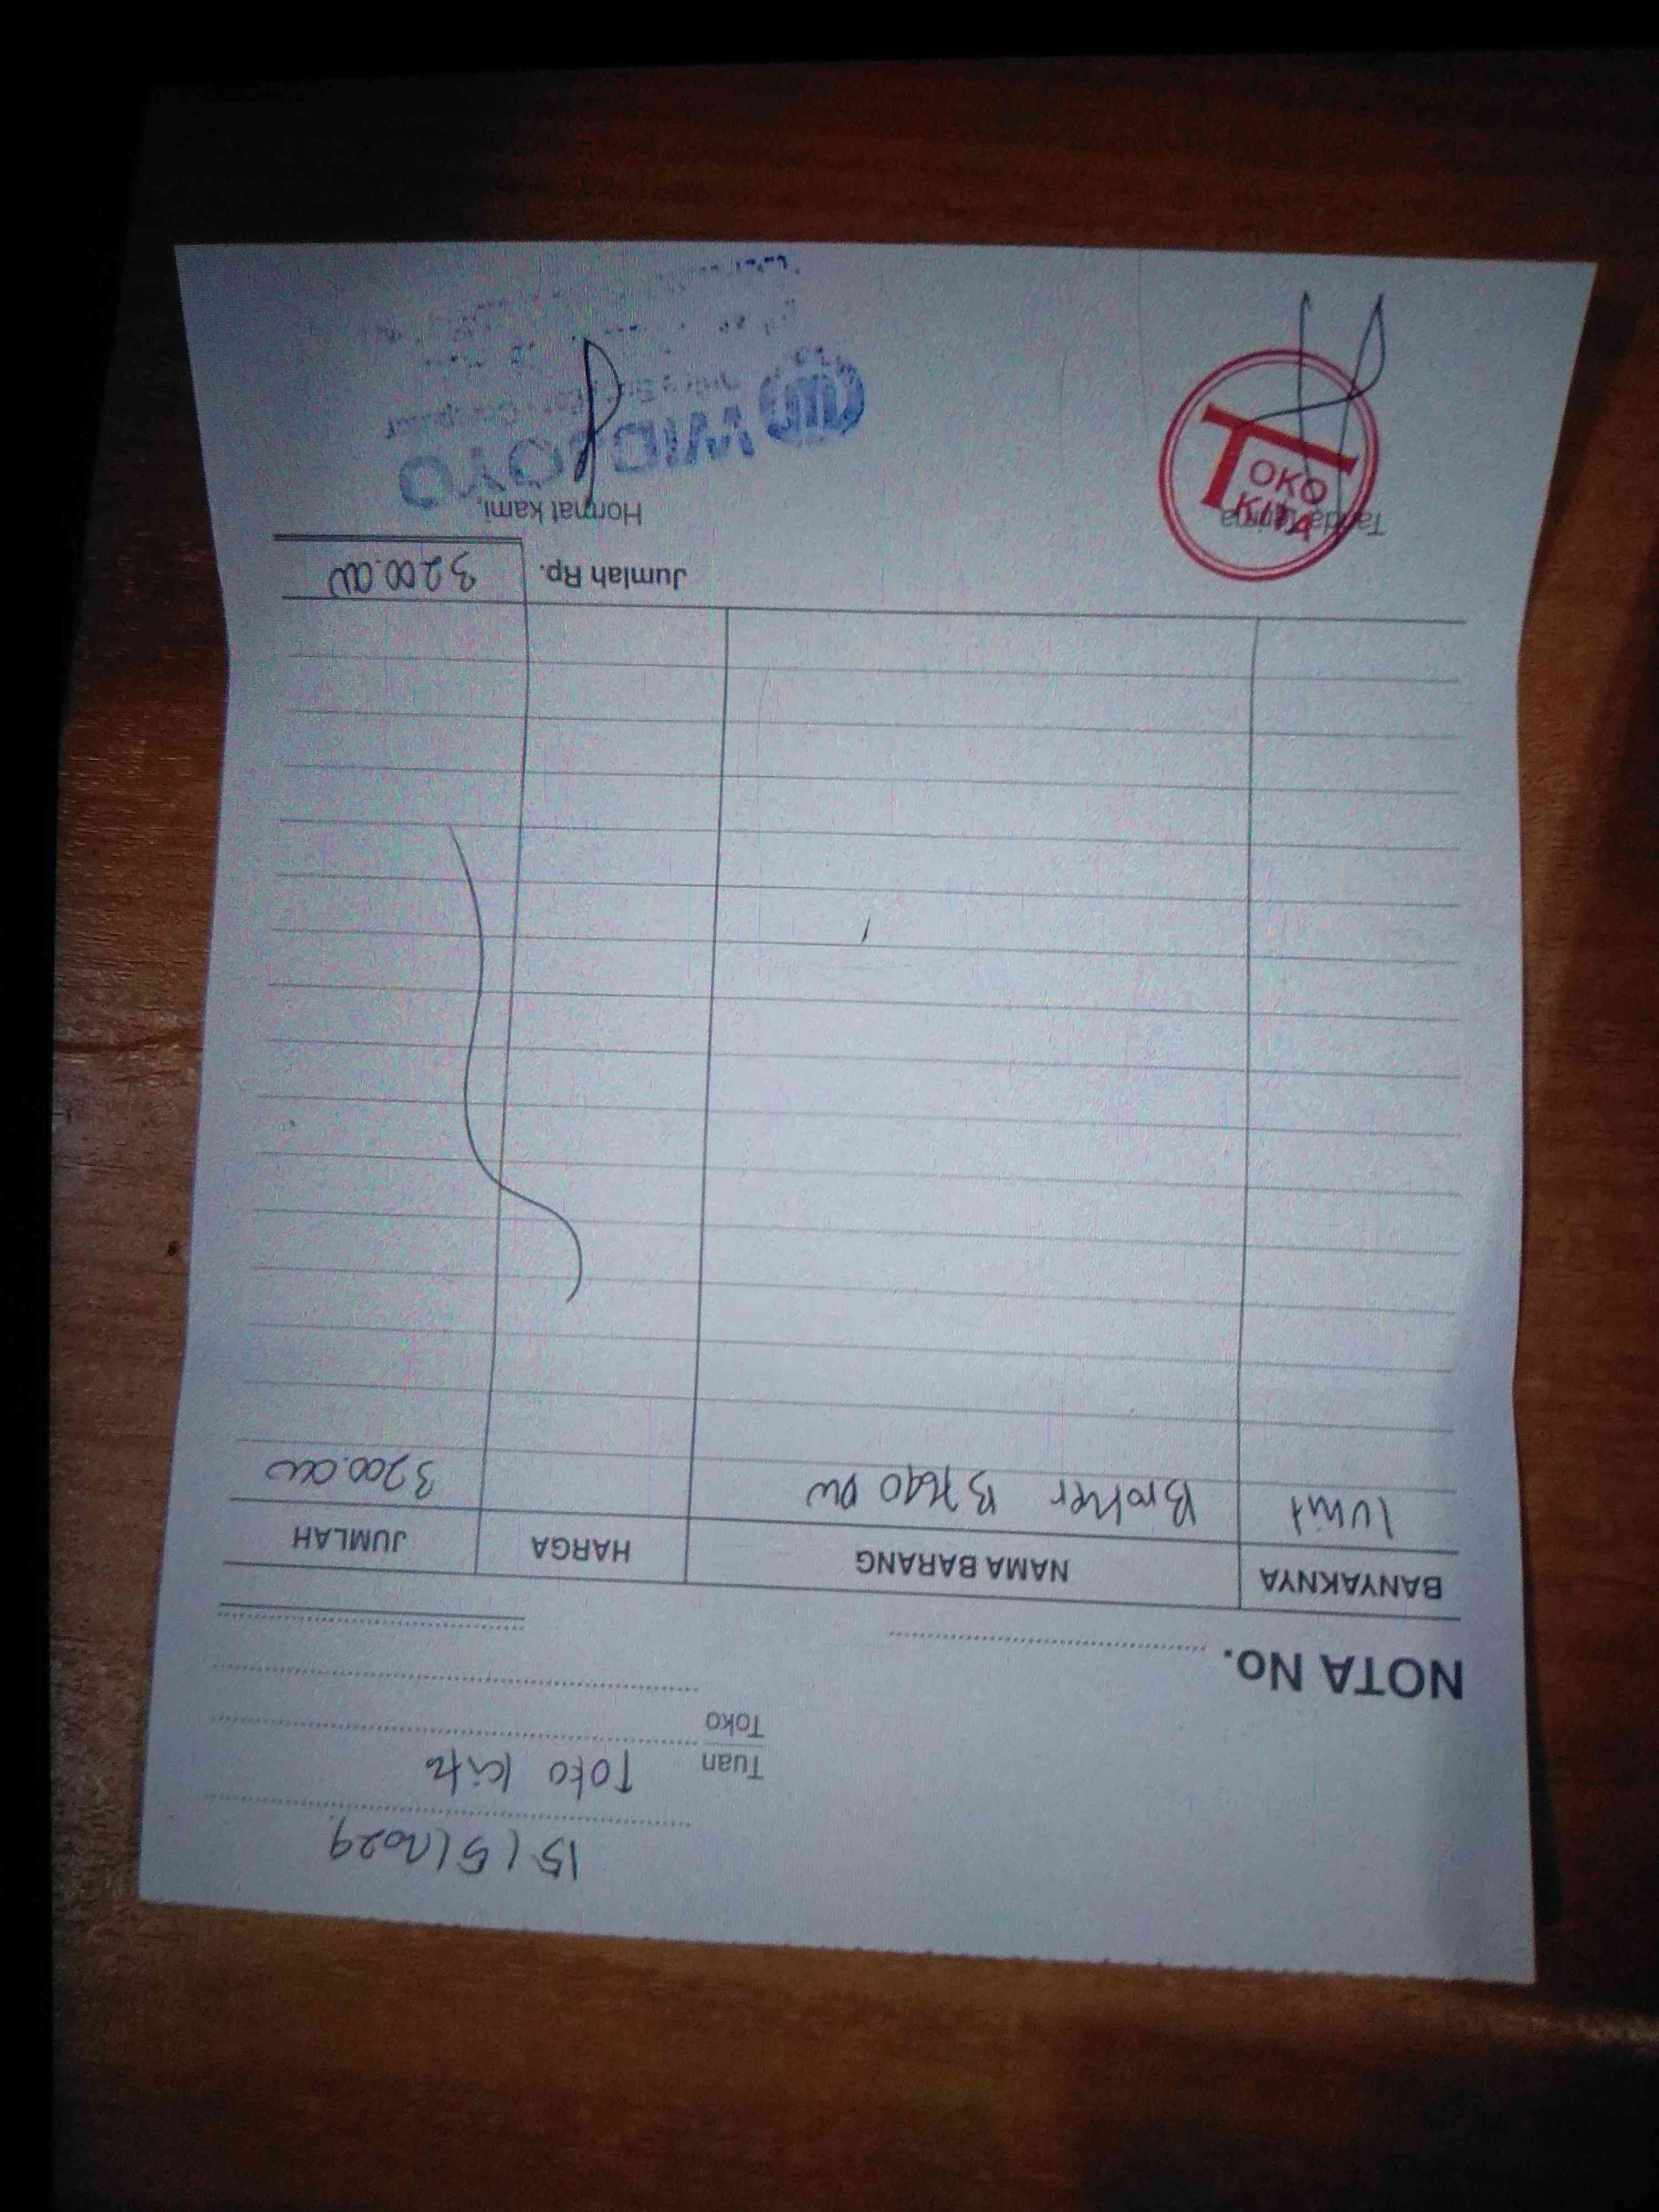 15/5/2024
Tuan Toko Kita
Toko
NOTA No.
BANYAKNYA NAMA BARANG HARGA JUMLAH
1 unit Brother DW 3200.000
Jumlah Rp. 3200.000
Tanda terima Hormat kami,
TOKO
KITA
WIDJOYO